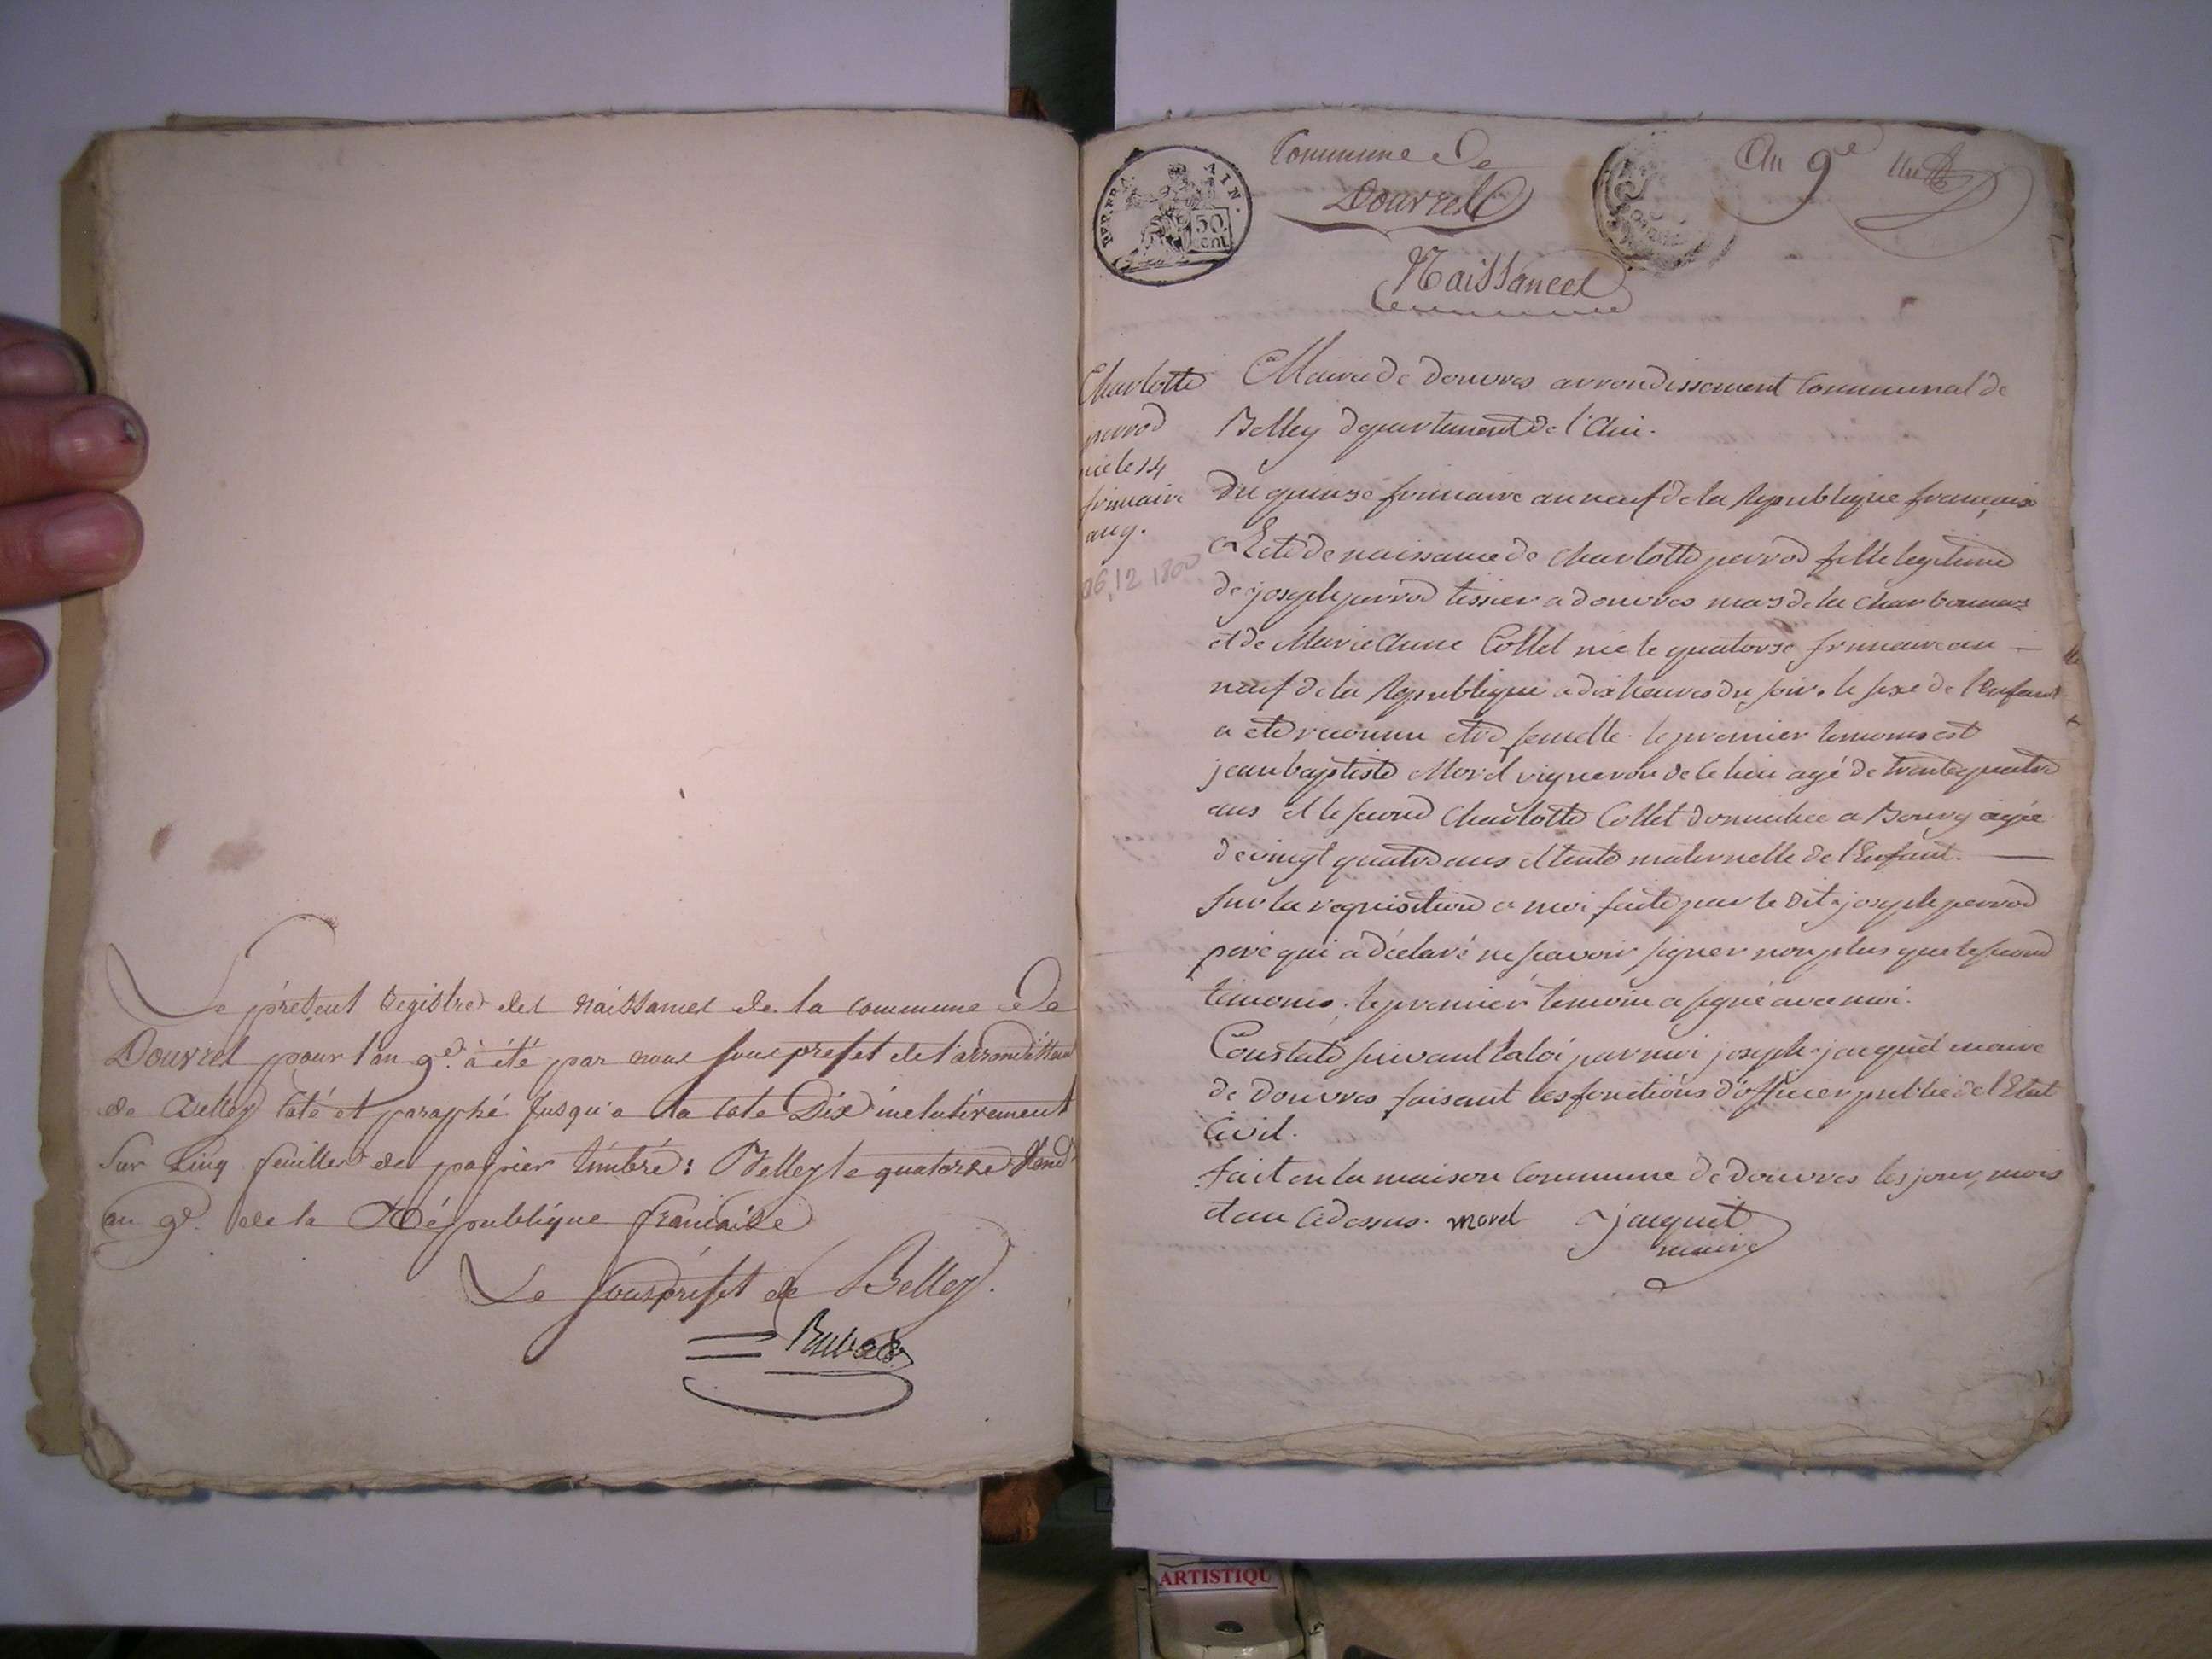 Le présent registre des naissances de la commune de
Douvres pour l'an 9e. à été par nous sous prefet de l'arrondissement
de Belley coté et paraphé jusqu'a la cote Dix inclusivement
Sur Cinq feuilles de papier timbré: Belley le quatorze Vend.
an 9e. de la République française
Le sousprefet de Belley.
REP. FRA. AIN.
50 cent
Commune de
Douvres
An 9e
Naissances
Charlotte
perrod
née le 14
frimaire
an 9.
06.12 1800
Mairie de douvres arrondissement Communal de
Belley departement de l'Ain.
Du quinze frimaire an neuf de la Republique française
Acte de naissance de Charlotte perrod fille legitime
de joseph perrod tissier a douvres mas de la Charbonnas
et de Marie Anne Collet née le quatorze frimaire an
neuf de la Republique a dix heures du soir. le sexe de l'Enfant
a eté reconnu etre femelle. le premier temoins est
jean baptiste Morel vigneron de ce lieu agé de trente quatre
ans et le second Charlotte Collet domiciliee a Bourg agée
de vingt quatre ans et tente maternelle de l'Enfant.
Sur la requisition a moi faite par le dit joseph perrod
pere qui a déclaré ne scavoir signer non plus que le second
temoins. le premier temoin a signé avec moi.
Constaté suivant la loi par moi joseph jacquet maire
de douvres faisant les fonctions d'officier public de l'Etat
Civil.
fait en la maison Commune de douvres les jour, mois
et an cidessus. morel jacquet
maire
ARTISTIQU